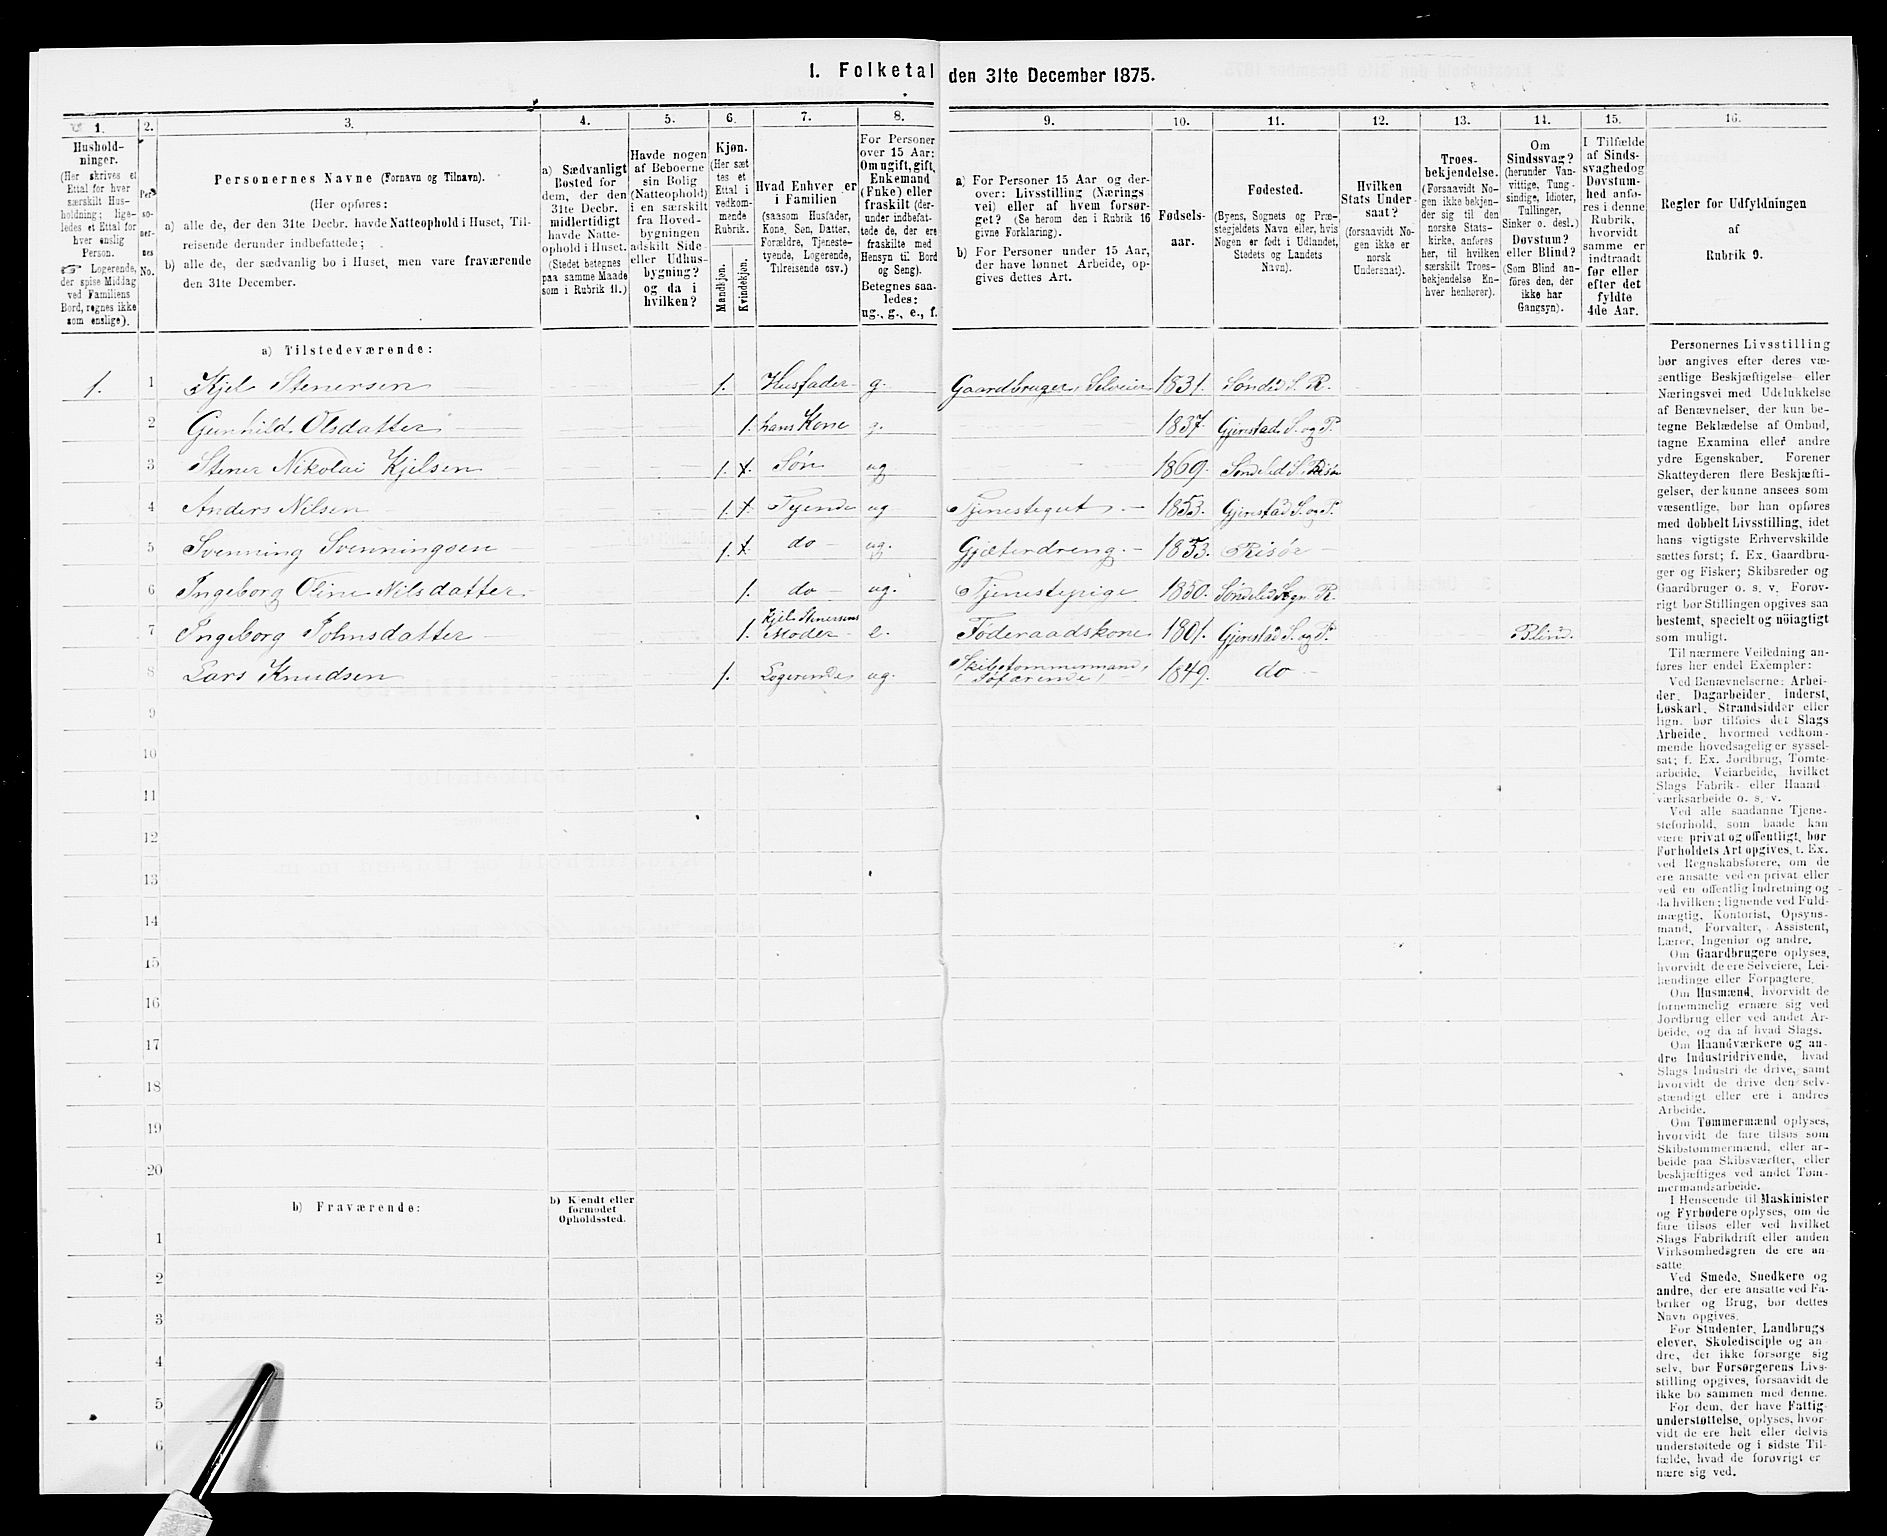 1. Folketal den 31te December 1875.
1.
Hushold-
ninger.
(Her skrives et
Ettal for hver
særskilt Hus-
holdning; lige-
ledes et Ettal for
hver enslig
Person.
☞ Logerende,
der spise Middag
ved Familiens
Bord, regnes ikke
som enslige).
2.
Per-
so-
ner-
nes
No.
3.
Personernes Navne (Fornavn og Tilnavn).
(Her opføres:
a) alle de, der den 31te Decbr. havde Natteophold i Huset, Til-
reisende derunder indbefattede;
b) alle de, der sædvanlig bo i Huset, men vare fraværende
den 31te December.
4.
a) Sædvanligt
Bosted for
dem, der den
31te Decbr.
midlertidigt
havde Natte-
ophold i Huset.
(Stedet betegnes
paa samme Maade
som i Rubrik 11.)
5.
Havde nogen
af Beboerne
sin Bolig
(Natteophold)
i en særskilt
fra Hoved-
bygningen
adskilt Side-
eller Udhus-
bygning?
og da i
hvilken?
6.
Kjøn.
(Her sæt-
tes et
Ettal i
vedkom-
mende
Rubrik.
Mandkjøn.
Kvindekjøn.
7.
Hvad Enhver er
i Familien
(saasom Husfader,
Kone, Søn, Datter,
Forældre, Tjeneste-
tyende, Logerende,
Tilreisende osv.)
8.
For Personer
over 15 Aar:
Om ugift, gift,
Enkemand
(Enke) eller
fraskilt (der-
under indbefat-
tede de, der ere
fraskilte med
Hensyn til Bord
og Seng).
Betegnes saa-
ledes:
ug., g., e., f.
9.
a) For Personer 15 Aar og der-
over: Livsstilling (Nærings-
vei) eller af hvem forsør-
get? (Se herom den i Rubrik 16
givne Forklaring).
b) For Personer under 15 Aar,
der have lønnet Arbeide, op-
gives dettes Art.
10.
Fødsels-
aar.
11.
Fødested.
(Byens, Sognets og Præ-
stegjeldets Navn eller, hvis
Nogen er født i Udlandet,
Stedets og Landets
Navn).
12.
Hvilken
Stats Under-
saat?
(forsaavidt No-
gen ikke er
norsk
Undersaat).
13.
Troes-
bekjendelse.
(Forsaavidt No-
gen ikke bekjen-
der sig til den
norske Stats-
kirke, anføres
her, til hvilken
særskilt Troes-
bekjendelse En-
hver henhører).
14.
Om
Sindssvag?
(herunder Van-
vittige, Tung-
sindige, Idioter,
Tullinger,
Sinker o. desl.)
Døvstum?
eller Blind?
(Som Blind an-
føres den, der
ikke har
Gangsyn).
15.
I Tilfælde
af Sinds-
svaghed og
Døvstum-
hed anfø-
res i denne
Rubrik,
hvorvidt
samme er
indtraadt
før eller
efter det
fyldte
4de Aar.
16.
Regler for Udfyldningen
af
Rubrik 9.
a) Tilstedeværende:
1. 1 Kjel Stenersen 1. Husfader g. Gaardbruger, Selveier 1831. Sønde S. R.
2 Gunhild Olsdatter 1. hans Kone g. 1837. Gjerestad S. og P.
3 Stener Nikolai Kjelsen 1. Søn ug 1869. Søndeled S. Risør
4 Anders Nilsen 1. Tyende ug Tjenestegut 1853. Gjerestad S. og P.
5 Svenning Svenningsen 1. do ug. Gjæterdreng. 1853. Risør
6 Ingeborg Oline Nilsdatter 1. do ug. Tjenestepige 1850. Søndeled Sogn R.
7 Ingeborg Johnsdatter 1. Kjel Stenersens Moder e. Føderaadskone 1801. Gjerestad S. og P. Blind.
8 Lars Knudsen 1. Logerende ug. Skibstømmermand, Søfarende, 1849. do
9
10
11
12
13
14
15
16
17
18
19
20
b) Fraværende:
b) Kjendt eller
formodet
Opholdssted.
1
2
3
4
5
6
Personernes Livsstilling
bør angives efter deres væ-
sentlige Beskjæftigelse eller
Næringsvei med Udelukkelse
af Benævnelser, der kun be-
tegne Beklædelse af Ombud,
tagne Examina eller andre
ydre Egenskaber. Forener
Skatteyderen flere Beskjæfti-
gelser, der kunne ansees som
væsentlige, bør han opføres
med dobbelt Livsstilling, idet
hans vigtigste Erhvervskilde
sættes først; f. Ex. Gaardbru-
ger og Fisker; Skibsreder og
Gaardbruger o. s. v. Forøv-
rigt bør Stillingen opgives saa
bestemt, specielt og nöiagtigt
som muligt.
Til nærmere Veiledning an-
føres her endel Exempler:
Ved Benævnelserne: Arbei-
der, Dagarbeider, Inderst,
Løskarl, Strandsidder eller
lign. bør tilføies det Slags
Arbeide, hvormed vedkom-
mende hovedsagelig er syssel-
sat; f. Ex. Jordbrug, Tomte-
arbeide, Veiarbeide, hvilket
Slags Fabrik- eller Haand
værksarbeide o. s. v.
Ved alle saadanne Tjene-
steforhold, som baade kan
være privat og offentligt, bør
Forholdets Art opgives, t. Ex.
ved Regnskabsførere, om de
ere ansatte ved en privat eller
ved en offentlig Indretning og
da hvilken; lignende ved Fuld-
mægtig, Kontorist, Opsyns-
mand, Forvalter, Assistent,
Lærer, Ingeniør og andre.
Om Gaardbrugere oplyses,
hvorvidt de ere Selveiere, Lei-
lændinge eller Forpagtere.
Om Husmænd, hvorvidt de
fornemmelig ernære sig ved
Jordbrug eller ved andet Ar-
beide, og da af hvad Slags.
Om Haandværkere og an-
dre Industridrivende, hvad
Slags Industri de drive, samt
hvorvidt de drive den selv-
stændigt eller ere i andres
Arbeide.
Om Tømmermænd oplyses,
hvorvidt de fare tilsøs som
Skibstømmermænd, eller ar-
beide paa Skibsværfter, eller
beskjæftiges ved andet Tøm-
mermandsarbeide.
I Henseende til Maskinister
og Fyrbødere oplyses, om de
fare tilsøs eller ved hvilket
Slags Fabrikdrift eller anden
Virksomhedsgren de ere an-
satte.
Ved Smede, Snedkere og
andre, der ere ansatte ved Fa-
briker og Brug, bør dettes
Navn opgives.
For Studenter, Landbrugs-
elever, Skoledisciple og an-
dre, der ikke forsørge sig
selv, bør Forsørgerens Livs-
stilling opgives, forsaavidt de
ikke bo sammen med denne.
For dem, der have Fattig-
understøttelse, oplyses, hvor-
vidt de ere helt eller delvis
understøttede og i sidste Til-
fælde, hvad de forøvrigt er-
nære sig ved.